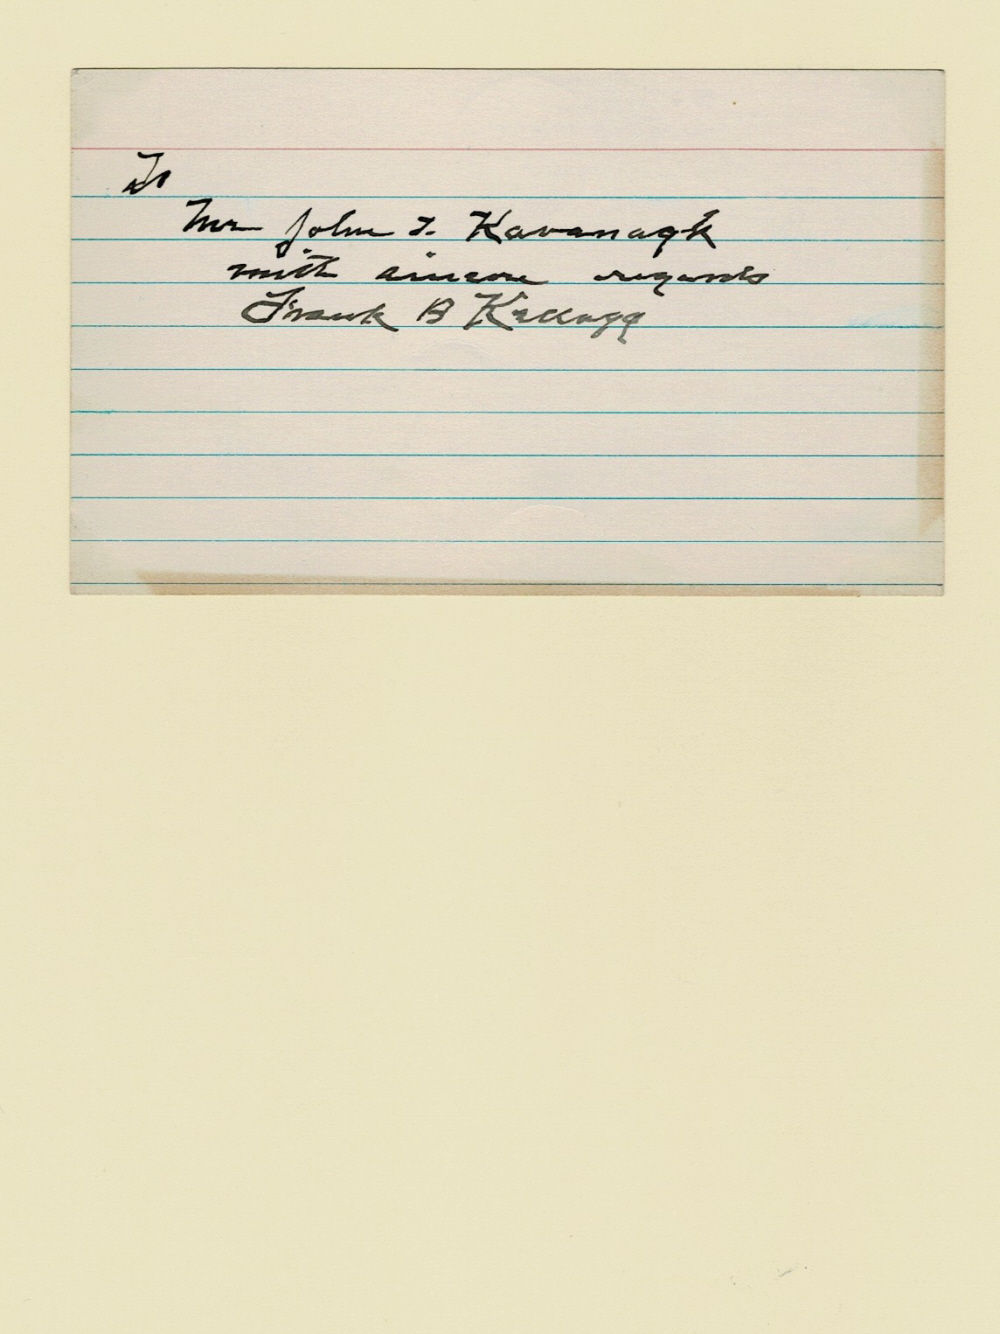 To
Mr John F. Kavanagh
with sincere regards
Frank B Kellogg